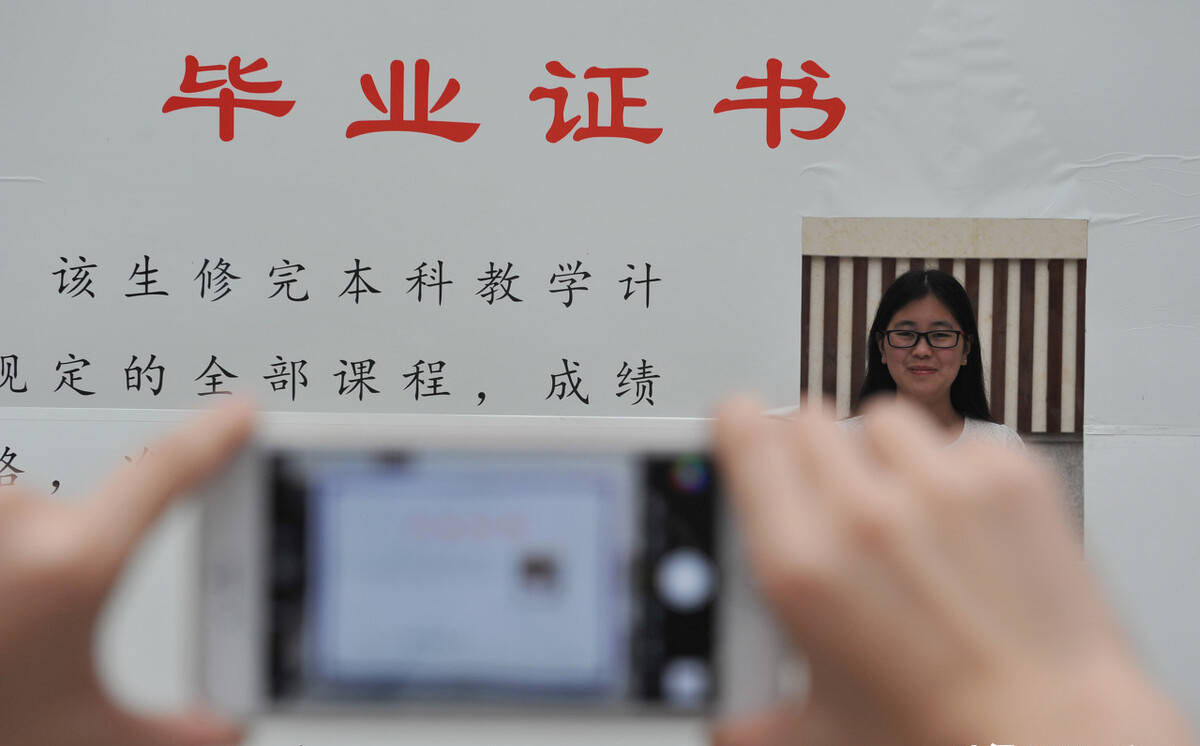 毕业证书
该生修完本科教学计
规定的全部课程，成绩
格，